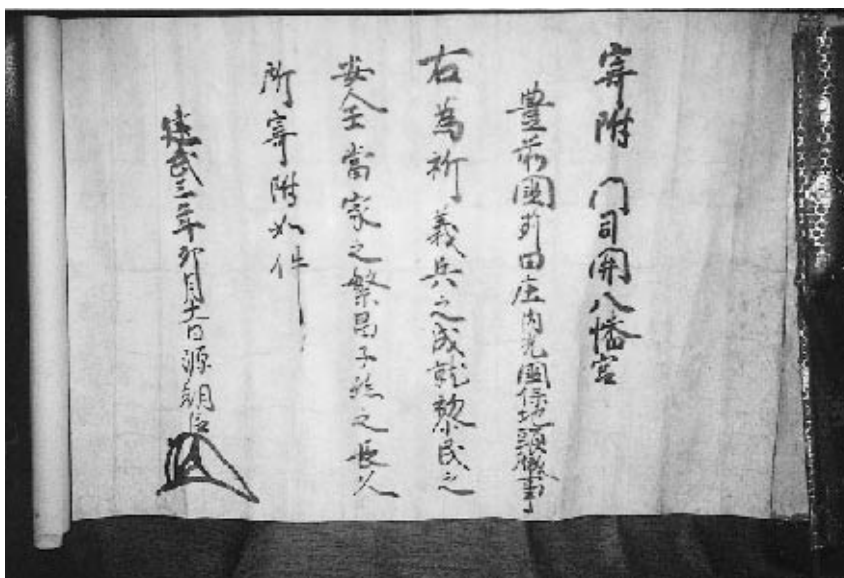 寄附 門司関八幡宮
豊前國苅田庄内光國保地頭職事
右為祈義兵之成就黎民之
安全當家之繁昌子孫之長久
所寄附如件
建武三年卯月十一日源朝臣